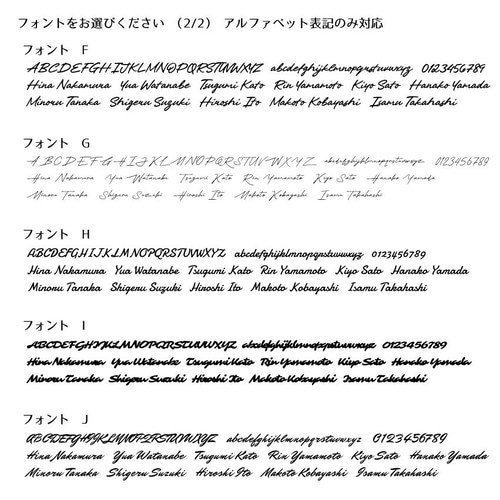 フォントをお選びください （2/2） アルファベット表記のみ対応
フォント F
ABCDEFGHIJKLMNOPQRSTUVWXYZ abcdefghijklmnopqrstuvwxyz 0123456789
Hina Nakamura Yua Watanabe Tsugumi Kato Rin Yamamoto Kiyo Sato Hanako Yamada
Minoru Tanaka Shigeru Suzuki Hiroshi Ito Makoto Kobayashi Isamu Takahashi
フォント G
ABCDEFGHIJKLMNOPQRSTUVWXYZ abcdefghijklmnopqrstuvwxyz 0123456789
Hina Nakamura Yua Watanabe Tsugumi Kato Rin Yamamoto Kiyo Sato Hanako Yamada
Minoru Tanaka Shigeru Suzuki Hiroshi Ito Makoto Kobayashi Isamu Takahashi
フォント H
ABCDEFGHIJKLMNOPQRSTUVWXYZ abcdefghijklmnopqrstuvwxyz 0123456789
Hina Nakamura Yua Watanabe Tsugumi Kato Rin Yamamoto Kiyo Sato Hanako Yamada
Minoru Tanaka Shigeru Suzuki Hiroshi Ito Makoto Kobayashi Isamu Takahashi
フォント I
ABCDEFGHIJKLMNOPQRSTUVWXYZ abcdefghijklmnopqrstuvwxyz 0123456789
Hina Nakamura Yua Watanabe Tsugumi Kato Rin Yamamoto Kiyo Sato Hanako Yamada
Minoru Tanaka Shigeru Suzuki Hiroshi Ito Makoto Kobayashi Isamu Takahashi
フォント J
ABCDEFGHIJKLMNOPQRSTUVWXYZ abcdefghijklmnopqrstuvwxyz 0123456789
Hina Nakamura Yua Watanabe Tsugumi Kato Rin Yamamoto Kiyo Sato Hanako Yamada
Minoru Tanaka Shigeru Suzuki Hiroshi Ito Makoto Kobayashi Isamu Takahashi